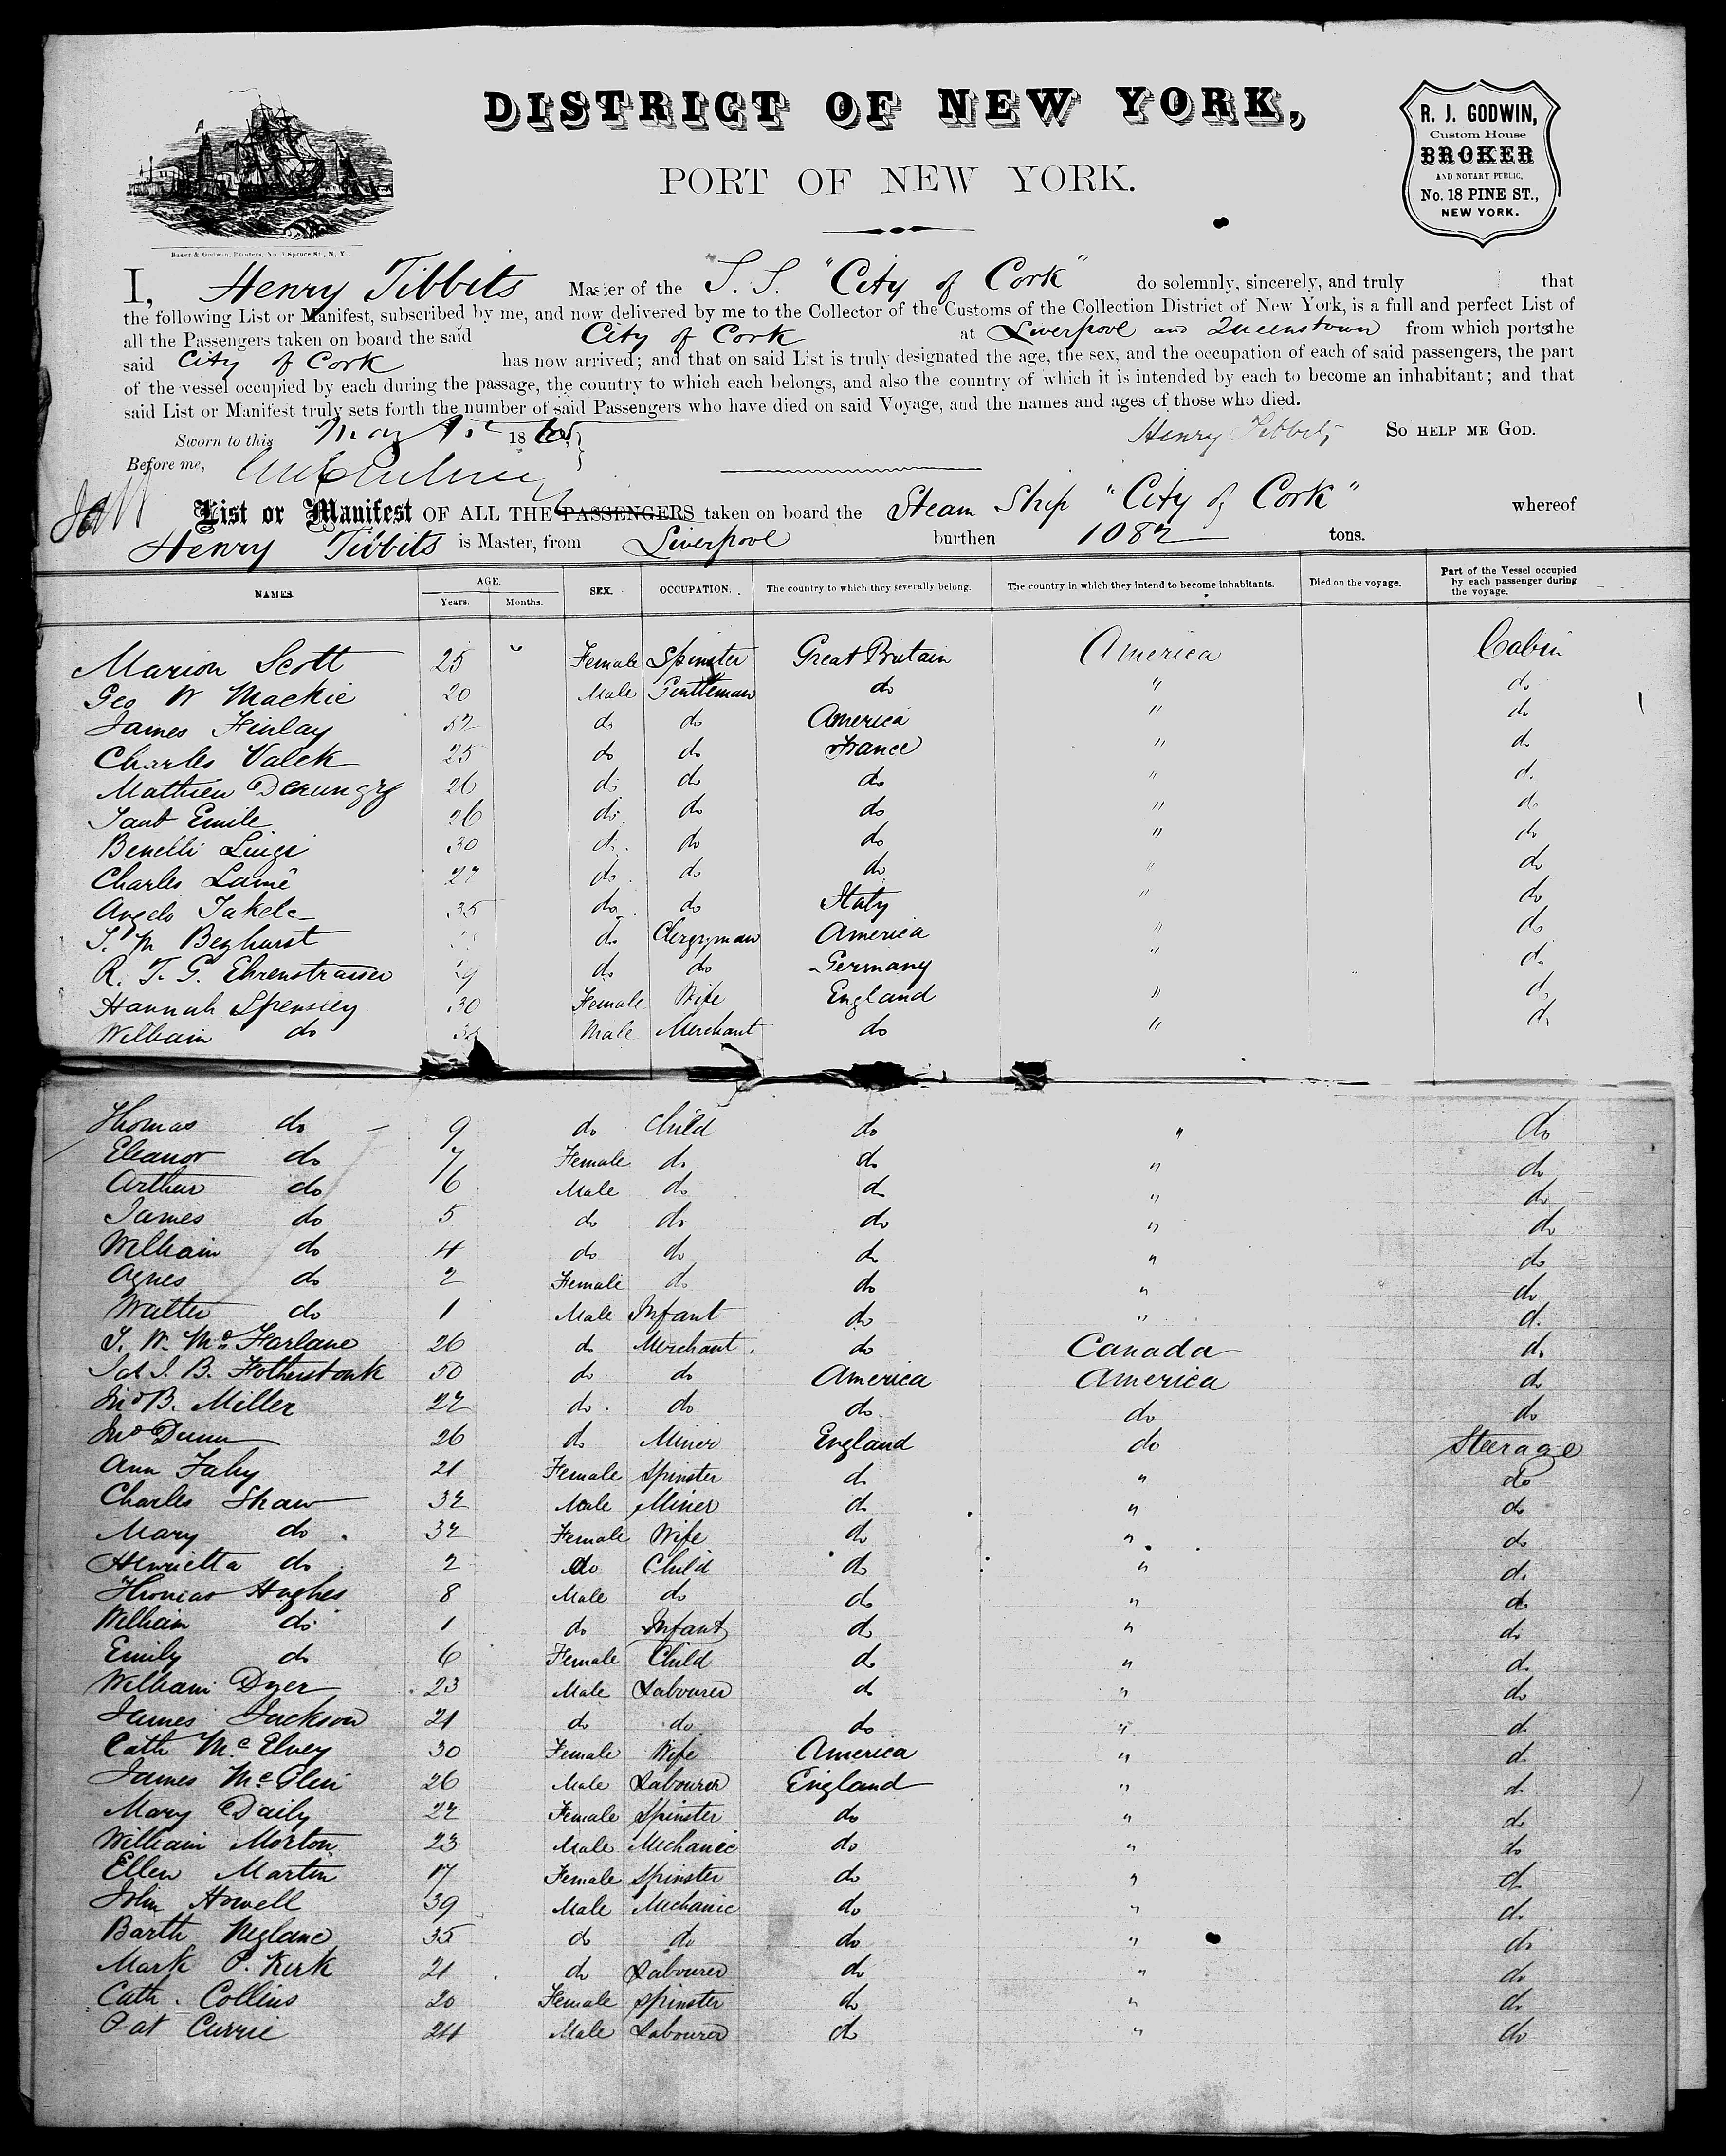 DISTRICT OF NEW YORK,
PORT OF NEW YORK.
R. J. GODWIN,
Custom House
BROKER
AND NOTARY PUBLIC,
No. 18 PINE ST.,
NEW YORK.
Baker & Godwin, Printers, No. 1 Spruce St., N. Y.
I, Henry Tibbits Master of the S. S. "City of Cork" do solemnly, sincerely, and truly that
the following List or Manifest, subscribed by me, and now delivered by me to the Collector of the Customs of the Collection District of New York, is a full and perfect List of
all the Passengers taken on board the said City of Cork at Liverpool and Queenstown from which ports the
said City of Cork has now arrived; and that on said List is truly designated the age, the sex, and the occupation of each of said passengers, the part
of the vessel occupied by each during the passage, the country to which each belongs, and also the country of which it is intended by each to become an inhabitant; and that
said List or Manifest truly sets forth the number of said Passengers who have died on said Voyage, and the names and ages of those who died.
Sworn to this May 1st 1865 Henry Tibbits SO HELP ME GOD.
Before me,
List or Manifest OF ALL THE PASSENGERS taken on board the Steam Ship "City of Cork" whereof
Henry Tibbits is Master, from Liverpool burthen 1082 tons.
NAMES. AGE. Years. Months. SEX. OCCUPATION. The country to which they severally belong. The country in which they intend to become inhabitants. Died on the voyage. Part of the Vessel occupied by each passenger during the voyage.
Marion Scott 25 Female Spinster Great Britain America Cabin
Geo W Mackie 20 Male Gentleman do " do
James Finlay do do America " do
Charles Valck 25 do do France " do
Mathieu 26 do do do " do
Emile 26 do do do " do
Benelli Luigi 30 do do do " do
Charles Lamé 27 do do do " do
Angelo 35 do do Italy " do
Beghurst do Clergyman America " do
R. T. G. Ehrenstrasser do do Germany " do
Hannah Spensley 30 Female Wife England " do
William do Male Merchant do " do
Thomas do 9 do Child do " do
Eleanor do 7 Female do do " do
Arthur do 6 Male do do " do
James do 5 do do do " do
William do 4 do do do " do
Agnes do 2 Female do do " do
Walter do 1 Male Infant do " do
J. W. McFarlane 26 do Merchant do Canada do
J. B. 50 do do America America do
Jno B. Miller 22 do do do do do
Jno Dunn 26 do Miner England do Steerage
Ann Fahy 21 Female Spinster do " do
Charles Shaw 32 Male Miner do " do
Mary do 32 Female Wife do " do
Henrietta do 2 do Child do " do
Thomas Hughes 8 Male do do " do
William do 1 do Infant do " do
Emily do 6 Female Child do " do
William Dyer 23 Male Labourer do " do
James Jackson 21 do do do " do
Cath McElvey 30 Female Wife America " do
James McGlin 26 Male Labourer England " do
Mary Daily 22 Female Spinster do " do
William Morton 23 Male Mechanic do " do
Ellen Martin 17 Female Spinster do " do
John Howell 39 Male Mechanic do " do
Barth Neglane 35 do do do " do
Mark P. Kirk 21 do Labourer do " do
Cath. Collins 20 Female Spinster do " do
Pat Currie 24 Male Labourer do " do